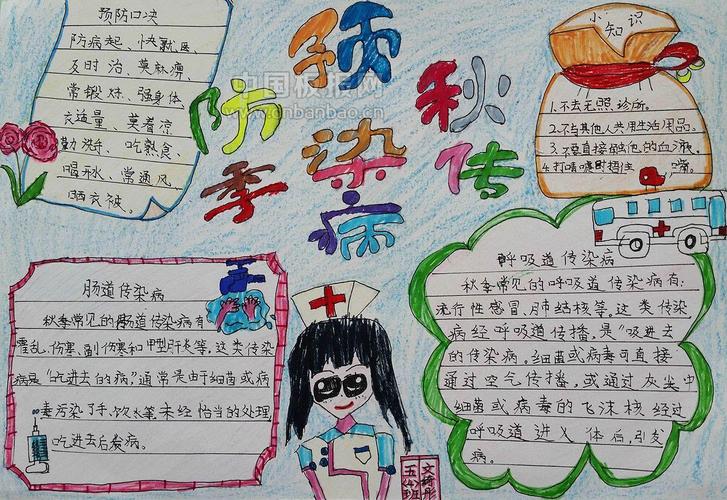 预防秋季传染病
中国板报网
www.cnbanbao.cn
预防口决
防病起、快就医、
及时治、莫麻痹、
常锻炼、强身体、
衣适量、莫着凉
勤洗手、吃熟食、
喝开水、常通风、
晒衣被。
小知识
1.不去无照诊所。
2.不与其他人共用生活用品。
3.不要直接触他的血液
4.打喷嚏时捂住嘴。
肠道传染病
秋季常见的肠道传染病有
霍乱、伤寒、副伤寒和甲型肝炎等。这类传染
病是“吃进去的病”,通常是由细菌或病
毒污染了手、饮食等,未经恰当的处理,
吃进去后发病。
呼吸道传染病
秋季常见的呼吸道传染病有:
流行性感冒、肺结核等。这类传染
病经呼吸道传播,是“吸进去
的传染病。细菌或病毒可直接
通过空气传播,或通过灰尘中
细菌或病毒的飞沫核经过
呼吸道进入体后,引发
病。
五(4)班
文绮彤